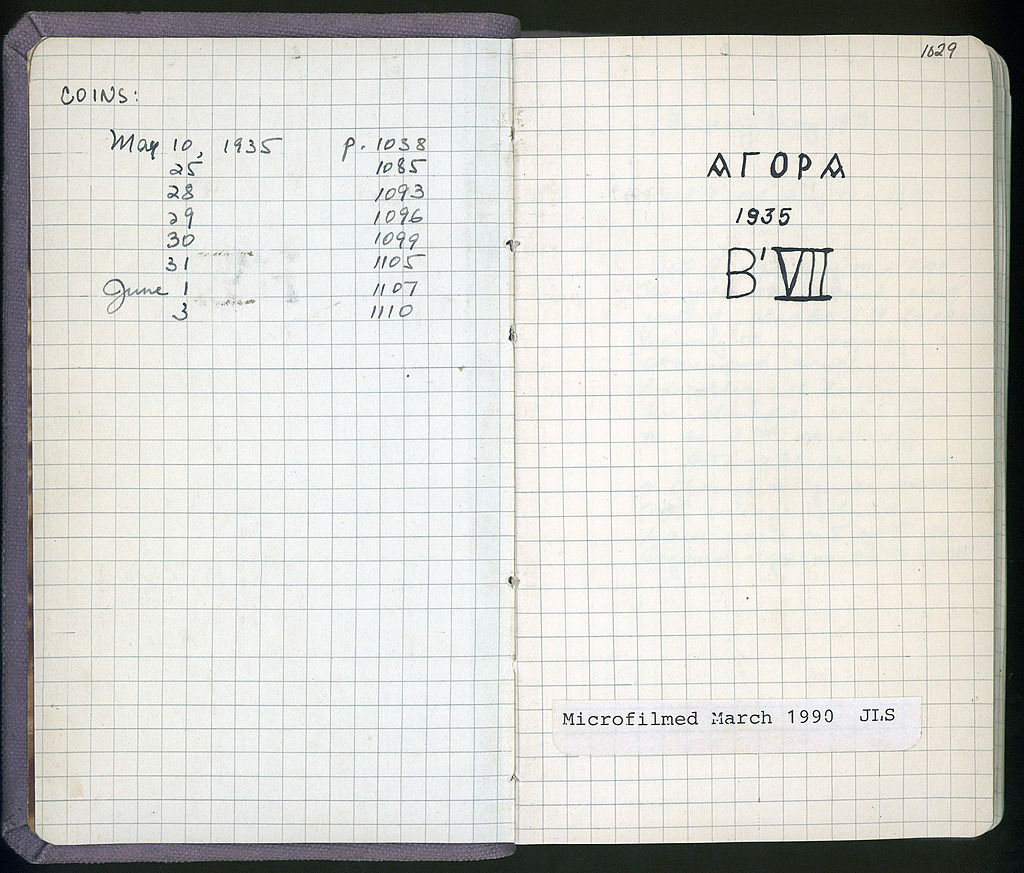 COINS:
May 10, 1935 p. 1038
25 1085
28 1093
29 1096
30 1099
31 1105
June 1 1107
3 1110
1029
ΑΓΟΡΑ
1935
Β' VII
Microfilmed March 1990 JLS